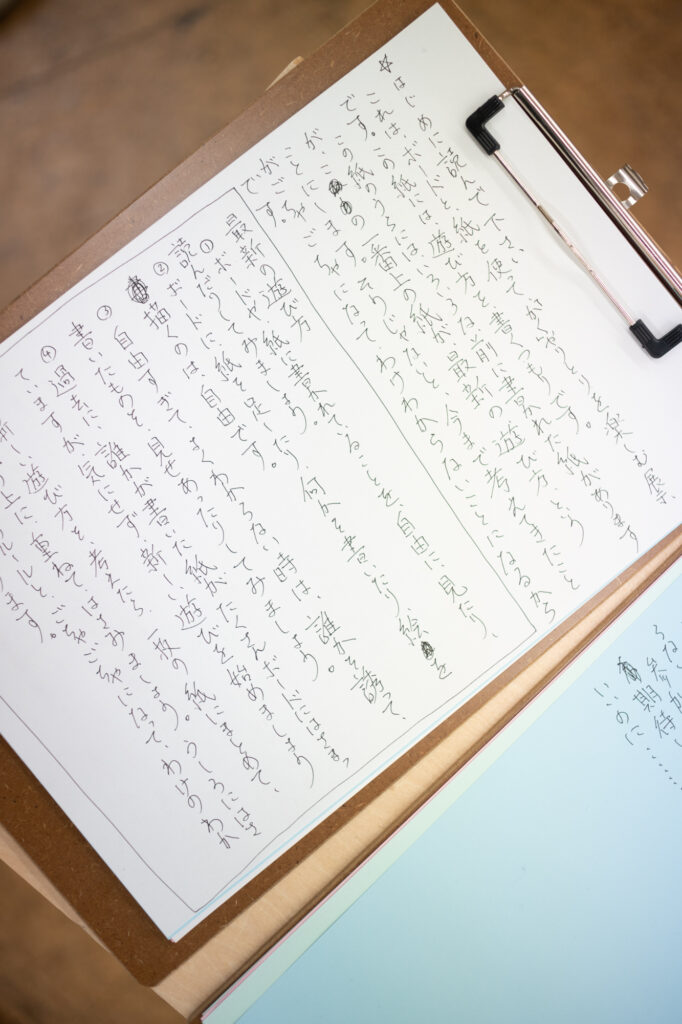 ☆はじめに読んで下さい。
これは、ボードと、紙を使って、がくやりとりを楽しむ展、
です。この紙には、遊び方を書くつもりです。
この紙のうらには、いろいろな、前に書かれた紙があります
が、一番上の紙が、最新の遊び方、という
ことにします。そうじゃないと、今まで考えてきたこと
がごちゃごちゃになって、わけわからないことになるから
です。
最新の遊び方
①ボードや紙に書かれていることを、自由に見たり、
読んだりしてみましょう。
②ボードに、紙を足したり、何かを書いたり、絵を
描くのは、自由です。
③自由すぎて、よくわからない時は、誰かを誘って、
書いたものを、見せあったりしてみましょう。
④過去に、誰かが書いた紙が、たくさんボードにはさまっ
ていますが、気にせず、新しい遊びを始めましょう
新しい遊び方を、考えたら、一枚の紙にまとめて、
上に、重ねてはさみましょう。うしろにはさ
ルールと、ごちゃごちゃになって、わけのわか
ます。
期待